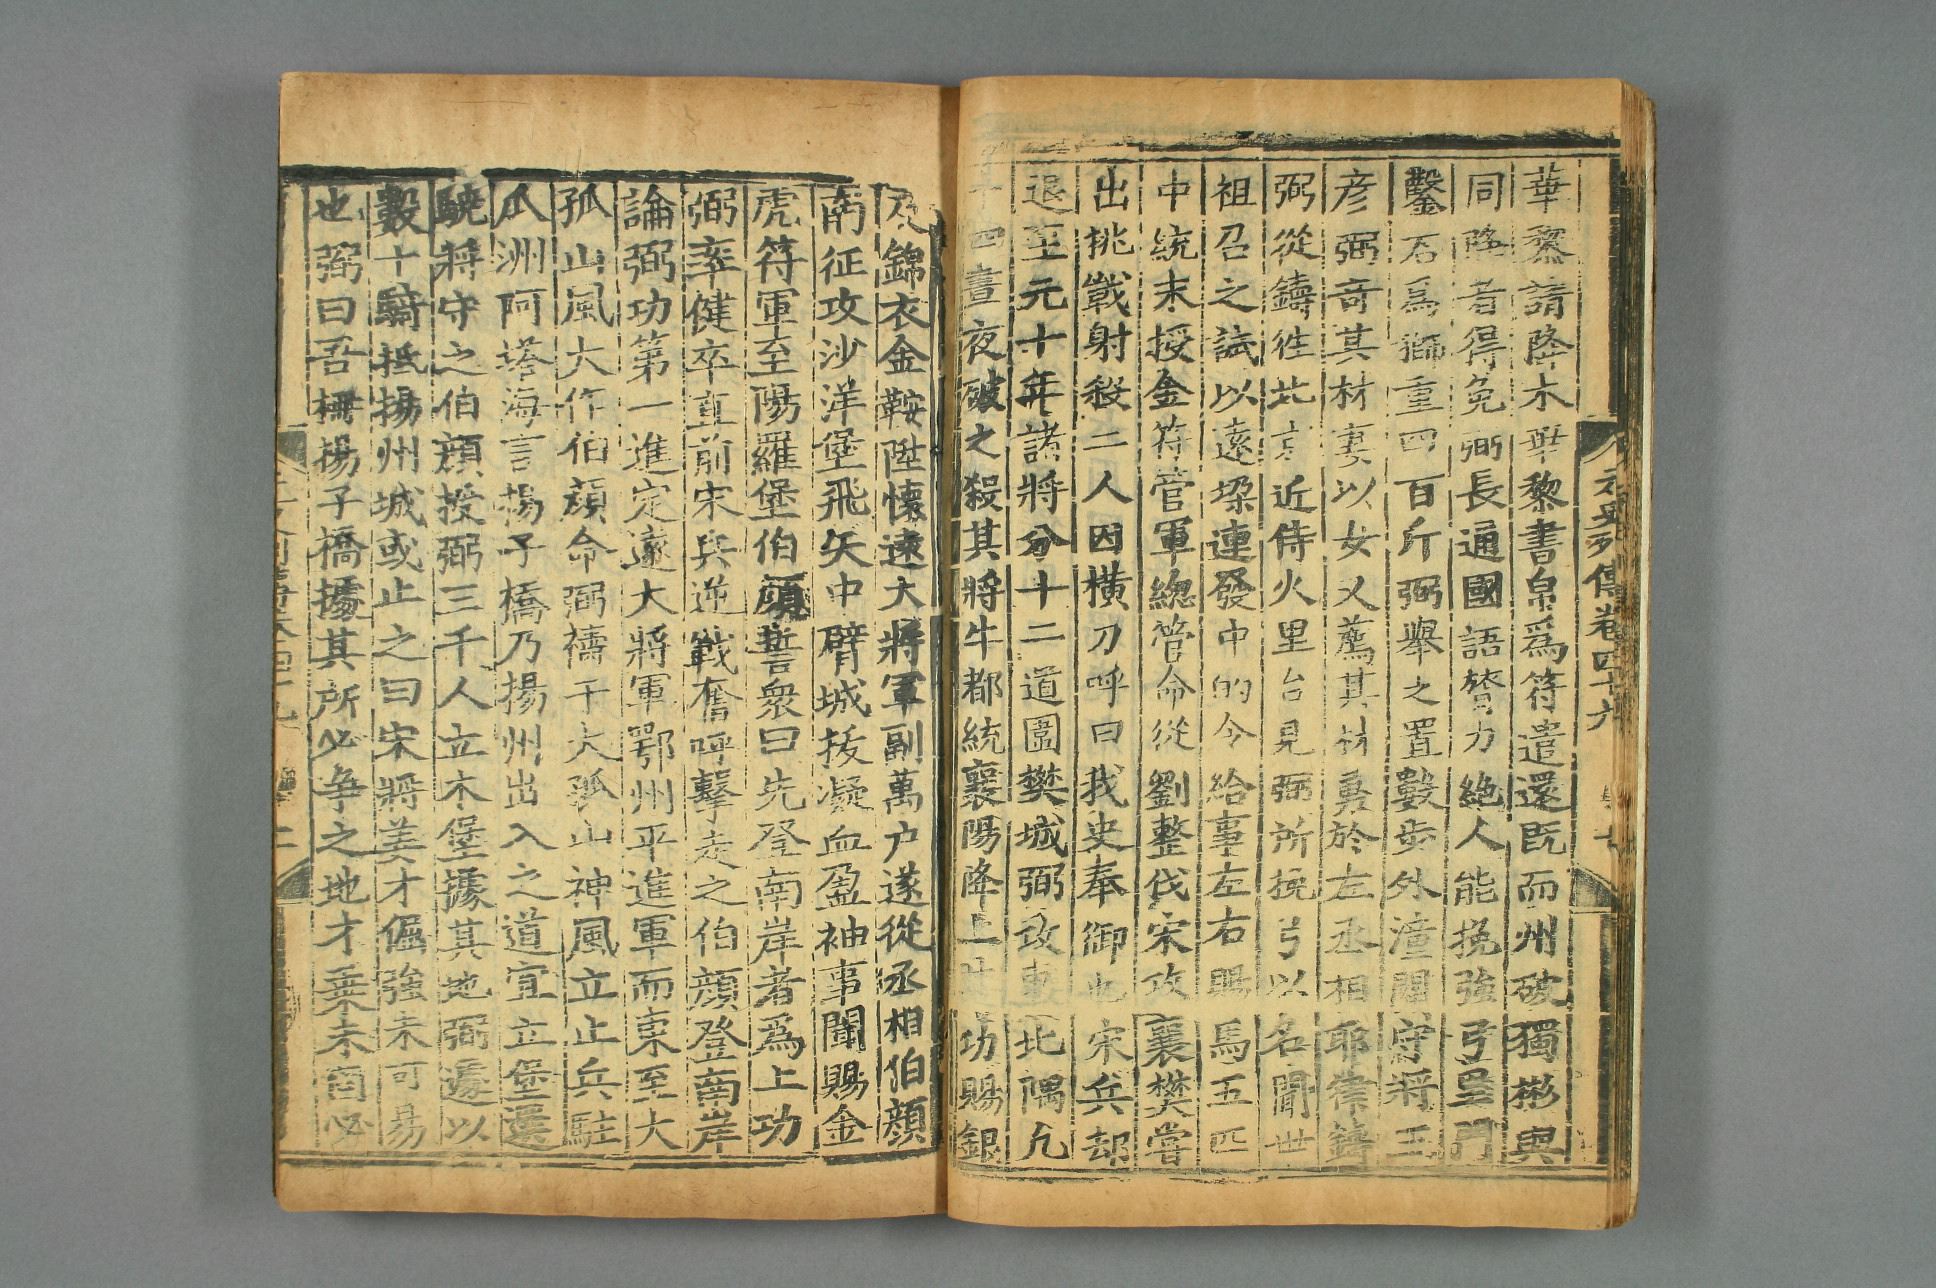 元史列傳卷四十九
華黎請降木華黎書帛爲符遣還旣而州破獨彬與
同降者得免弼長通國語膂力絶人能挽強弓里門
鑿石爲獅重四百斤弼舉之置數步外潼關守將王
彦弼奇其材妻以女又薦其材勇於左丞相耶律鑄
弼從鑄徃北京近侍火里台見弼所挽弓以名聞世
祖召之試以遠垜連發中的令給事左右賜馬五匹
中統末授金符管軍緫管命從劉整伐宋攻襄樊嘗
出挑戰射殺二人因橫刀呼曰我史奉御也宋兵却
退至元十年諸將分十二道圍樊城弼攻東北隅凡
十四晝夜破之殺其將牛都統襄陽降上其功賜銀
及錦衣金鞍陞懷遠大將軍副萬户遂從丞相伯顔
南征攻沙洋堡飛矢中臂城拔凝血盈袖事聞賜金
虎符軍至陽羅堡伯顔誓衆曰先登南岸者爲上功
弼率健卒直前宋兵逆戰奮呼擊走之伯顔登南岸
論弼功第一進定遠大將軍鄂州平進軍而東至大
孤山風大作伯顔命弼禱于大孤山神風立止兵駐
瓜洲阿塔海言揚子橋乃揚州出入之道宜立堡選
驍將守之伯顔授弼三千人立木堡據其地弼遽以
數十騎抵揚州城或止之曰宋將姜才倔強未可易
也弼曰吾柵揚子橋據其所必爭之地才乗未固必